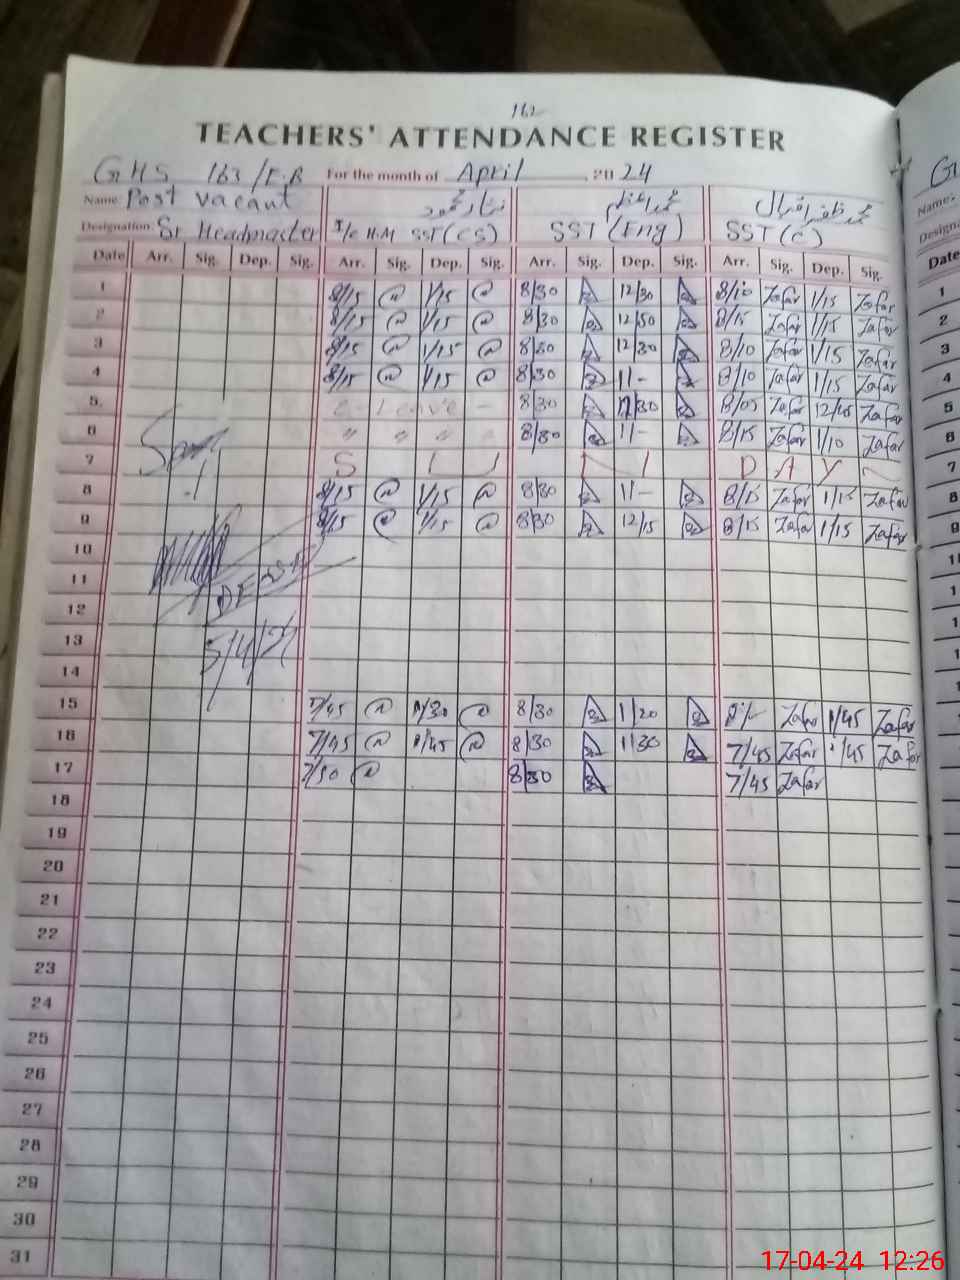 162
TEACHERS' ATTENDANCE REGISTER
GHS 163/E.B For the month of April 2024
Name: Post vacant محمد ظفر اقبال
Designation: Sr Headmaster I/C H.M SST(CS) SST (Eng) SST (C)
Date Arr. Sig. Dep. Sig. Arr. Sig. Dep. Sig. Arr. Sig. Dep. Sig. Arr. Sig. Dep. Sig.
1 8/15 1/15 8/30 12/30 8/10 Zafar 1/15 Zafar
2 8/15 1/15 8/30 12/50 8/15 Zafar 1/15 Zafar
3 8/15 1/15 8/30 12/30 8/10 Zafar 1/15 Zafar
4 8/15 1/15 8/30 11- 8/10 Zafar 1/15 Zafar
5 C-Leave - 8/30 12/30 8/05 Zafar 12/45 Zafar
6 " " " " 8/30 11- 8/15 Zafar 1/10 Zafar
7 S D A Y
8 8/15 1/15 8/30 11- 8/15 Zafar 1/15 Zafar
9 8/15 1/15 8/30 12/15 8/15 Zafar 1/15 Zafar
10
11
12
13
14
15 7/45 1/30 8/30 1/20 Zafar 1/45 Zafar
16 7/45 1/45 8/30 1/30 7/45 Zafar 1/45 Zafar
17 7/50 8/30 7/45 Zafar
18
19
20
21
22
23
24
25
26
27
28
29
30
31
17-04-24 12:26